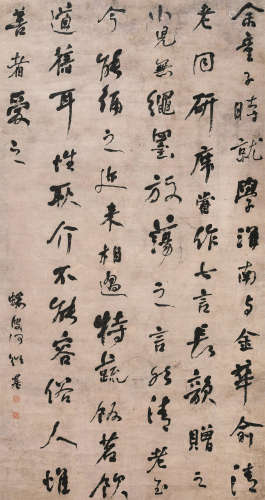 余童子時就學淮南與金華俞清
老同研席嘗作七言長韻贈之
小兒無繩墨放蕩之言然清老至
今能誦之近來相過特蔬飯茗飲
道舊耳性耿介不能容俗人惟
善者愛之
蝯叟何紹基